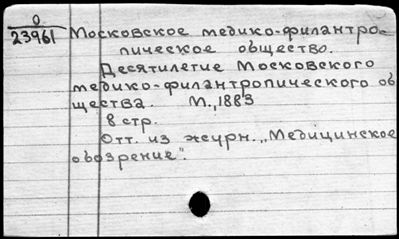 0
23961
Московское медико-филантро-
пическое общество.
Десятилетие Московского
медико-филантропического об
щества. М., 1883
8 стр.
Отт. из журн. „Медицинское
обозрение".